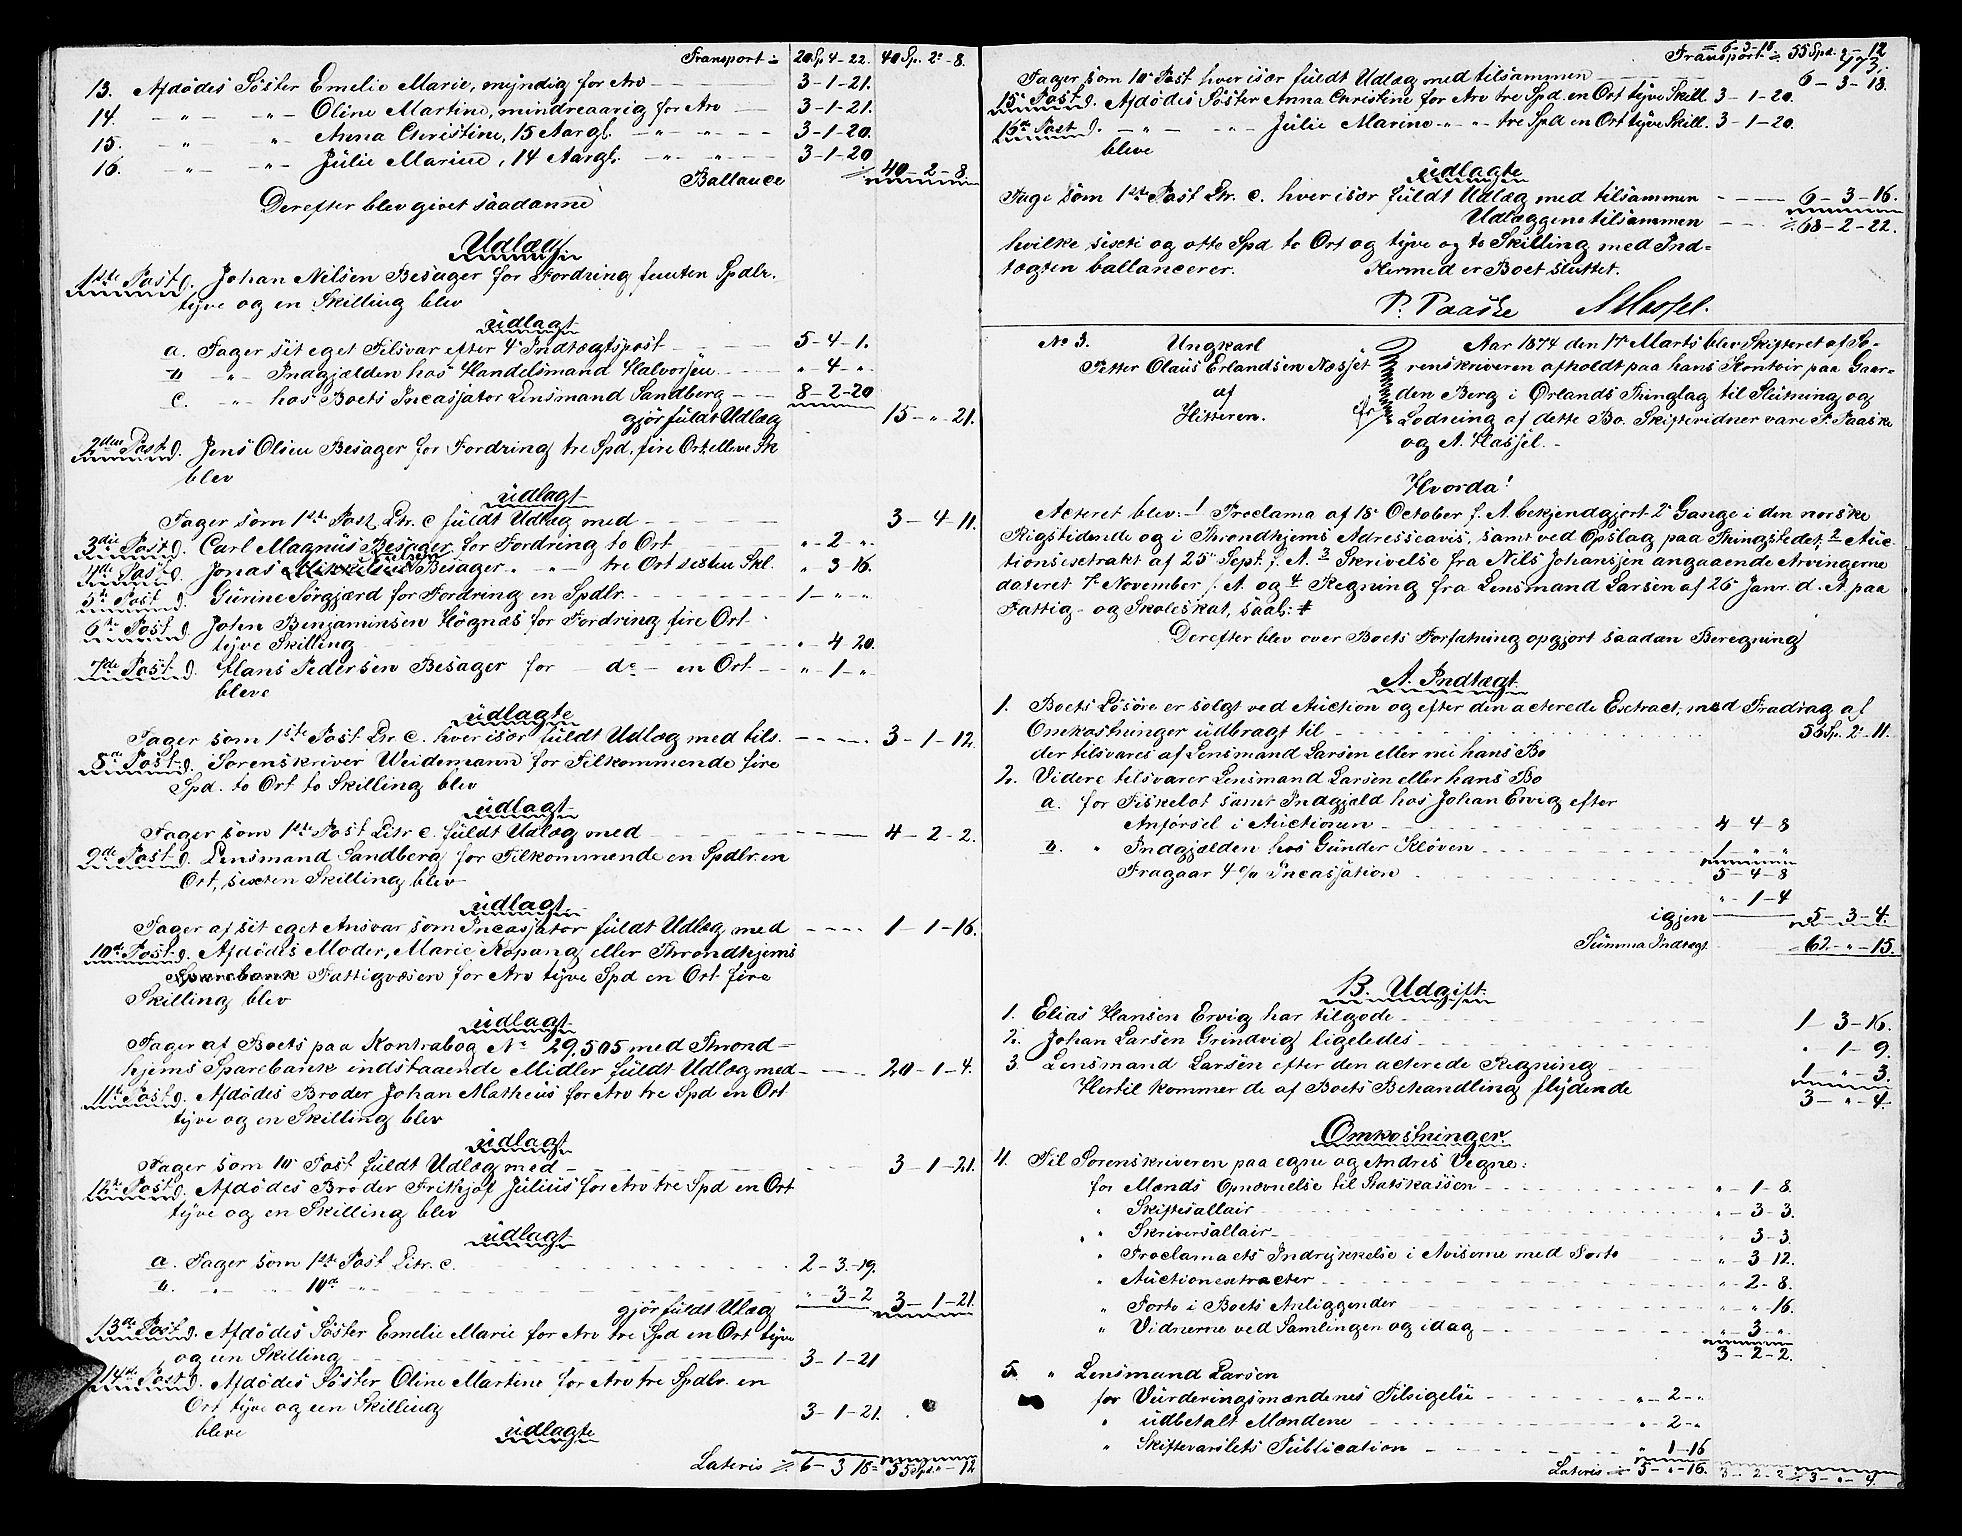 Transport ÷ 20 Sp 4-22. 40 Sp. 2"-8.
13. Afdödes Söster Emelie Marie, myndig for Arv — 3-1-21.
14. -"- -"- Oline Martine, mindreaarig for Arv — 3-1-21.
15. -"- -"- Anna Christine, 15 Aargl. -"- -"- 3-1-20.
16. -"- -"- Julie Marine, 14 Aargl. -"- -"- 3-1-20
Ballance 40-2-8.
Derefter blev givet saadanne
Udlæg
1ste Post). Johan Nilsen Besager for Fordring femten Spdlr.
tyve og en Skilling blev
udlagt
a. Tager sit eget Tilsvar efter 4de Indtægtspost 5-4-1.
b -"- Indgjælden hos Handelsmand Halvorsen "-4-"
c. -"- hos Boets Incassator Lensmand Sandberg 8-2-20
gjör fuldt Udlæg 15-"-21.
2den Post). Jens Olsen Besager for Fordring tre Spd. fire Ort elleve Sk
blev
udlagt
Tager som 1ste Post Ltr. c fuldt Udlæg med 3-4-11.
3die Post). Carl Magnus Besager for Fordring to Ort "-2-"-
4de Post). Jonas Mikkelsen Besager " -"- tre Ort sexten Skl. " 3-16.
5te Post). Gurine Sörgjærd for Fordring en Spdlr. 1-"-"
6te Post). John Benjaminsen Högnæs for Fordring fire Ort
tyve Skilling "-4-20.
7de Post). Hans Pedersen Besager for — do — en Ort "-1-"-
bleve
udlagte
Tager som 1ste Post Ltr c. hver især fuldt Udlæg med tils. 3-1-12.
8de Post). Sorenskriver Weidemann for Tilkommende fire
Spd. to Ort to Skilling blev
udlagt
Tager som 1ste Post Litr c. fuldt Udlæg med 4-2-2.
9de Post). Lensmand Sandberg for Tilkommende en Spdlr. en
Ort, sexten Skilling blev
udlagt
Tager af sit eget Ansvar som Incassator fuldt Udlæg med 1-1-16.
10de Post). Afdödes Moder, Marie Kopang eller Throndhjems
Sparebank Fattigvæsen for Arv tyve Spd en Ort fire
Skilling blev
udlagt
Tager af Boets paa Kontrabog No 29,505 med Thrond-
hjems Sparebank indstaaende Midler fuldt Udlæg med 20-1-4.
11te Post). Afdödes Broder Johan Matheus for Arv tre Spd en Ort
tyve og en Skilling blev
udlagt
Tager som 10de Post fuldt Udlæg med 3-1-21.
12te Post). Afdödes Broder Frithjof Julius for Arv tre Spd en Ort
tyve og en Skilling blev
udlagt
a. Tager som 1ste Post Litr. c. 2-3-19.
b. -"- -"- 10de -"- "-3-2
gjör fuldt Ulæg 3-1-21.
13de Post). Afdödes Söster Emelie Marie for Arv tre Spd en Ort tyve
og en Skilling 3-1-21
14de Post). Afdödes Söster Oline Martine for Arv tre Spdlr. en
Ort tyve og en Skilling 3-1-21.
bleve udlagte
Lateris ÷ 6-3 18 = 55 Spd. "-12
Transport = 6-3-18 ÷ 55 Spd. "-12
Tager som 10de Post hver især fuldt Udlæg med tilsammen 6-3-18.
15de Post). Afdödes Söster Anna Christine for Arv tre Spd. en Ort tyve Skill. 3-1-20.
16de Post). -"- -"- Julie Marine -"- -"- tre Spd en Ort tyve Skill. 3-1-20.
bleve
udlagte
Tage som 1ste Post Ltr. c. hver især fuldt Udlæg med tilsammen 6-3-16.
Udlæggene tilsammen 68-2-22.
hvilke sexti og otte Spd to Ort og tyve og to Skilling med Ind-
tægten ballancerer. Hermed er Boet sluttet.
P. Paaske A Hassel.
No 3. Ungkarl
Petter Olaus Erlandsen Næsset
af
Hitteren.
Aar 1874 den 17 Marts blev Skifteret af So-
renskriveren afholdt paa hans Kontoir paa Gaar-
den Berg i Ørlands Thinglag til Slutning og
Lodning af dette Bo. Skiftevidner vare P. Paaske
og A. Hassel.-
Hvorda!
Acteret blev: 1 Proclama af 18 October f. A. bekjendgjort 2de Gange i den norske
Rigstidende og i Throndhjems Adresseavis, samt ved Opslag paa Thingstedet, 2 Auc-
tionsextrakt af 25de Sept. f. A. 3 Skrivelse fra Nils Johansen angaaende Arvingerne
dateret 7de November f. A. og 4 Regning fra Lensmand Larsen af 26 Janr. d. A. paa
Fattig- og Skoleskat, saal:
Derefter blev over Boets Forfatning opgjort saadan Beregning
A. Indtægt
1. Boets Lösöre er solgt ved Auction og efter den acterede Extract, med Fradrag af
Omkostninger udbragt til 56 Sp. 2-11.
der tilsvares af Lensmand Larsen eller nu hans Bo
2. Videre tilsvarer Lensmand Larsen eller hans Bo
a. for Fiskelot samt Indgjæld hos Johan Ervig efter
Anförsel i Auctionen 4-4-8
b. " Indgjælden hos Gunder Klöven 1-"-"
5-4-8
Fragaar 4% Incassation "-1-4
igjen 5-3-4.
Summa Indtægt 62-"-15.
B. Udgift
1. Elias Hansen Ervig har tilgode 1-3-16.
2. Johan Larsen Grindvig ligeledes " 1-9.
3. Lensmand Larsen efter den acterede Regning 1-"-3.
3-"-4.
Hertil kommer de af Boets Behandling flydende
Omkostninger
4. Til Sorenskriveren paa egne og Andres Vegne:
for Mænds Opnævnelse til Statskassen "-1-8.
" Skiftesallair "-3-3.
" Skriversallair "-3-3.
" Proclamaets Indrykkelse i Aviserne med Porto "-3-12.
" Auctionsextracter "-2-8.
" Porto i Boets Anliggender "-"-16.
" Vidnerne ved Samlingen og idag "-3-"
3-2-2.
5. " Lensmand Larsen
for Vurderingsmændenes Tilsigelse "-2-"
" udbetalt Mændene "-2-"
" Skiftevarslets Publication " 1-16
Lateris ÷ 5-"-16. 3-2-2 ÷ 3-"-4.